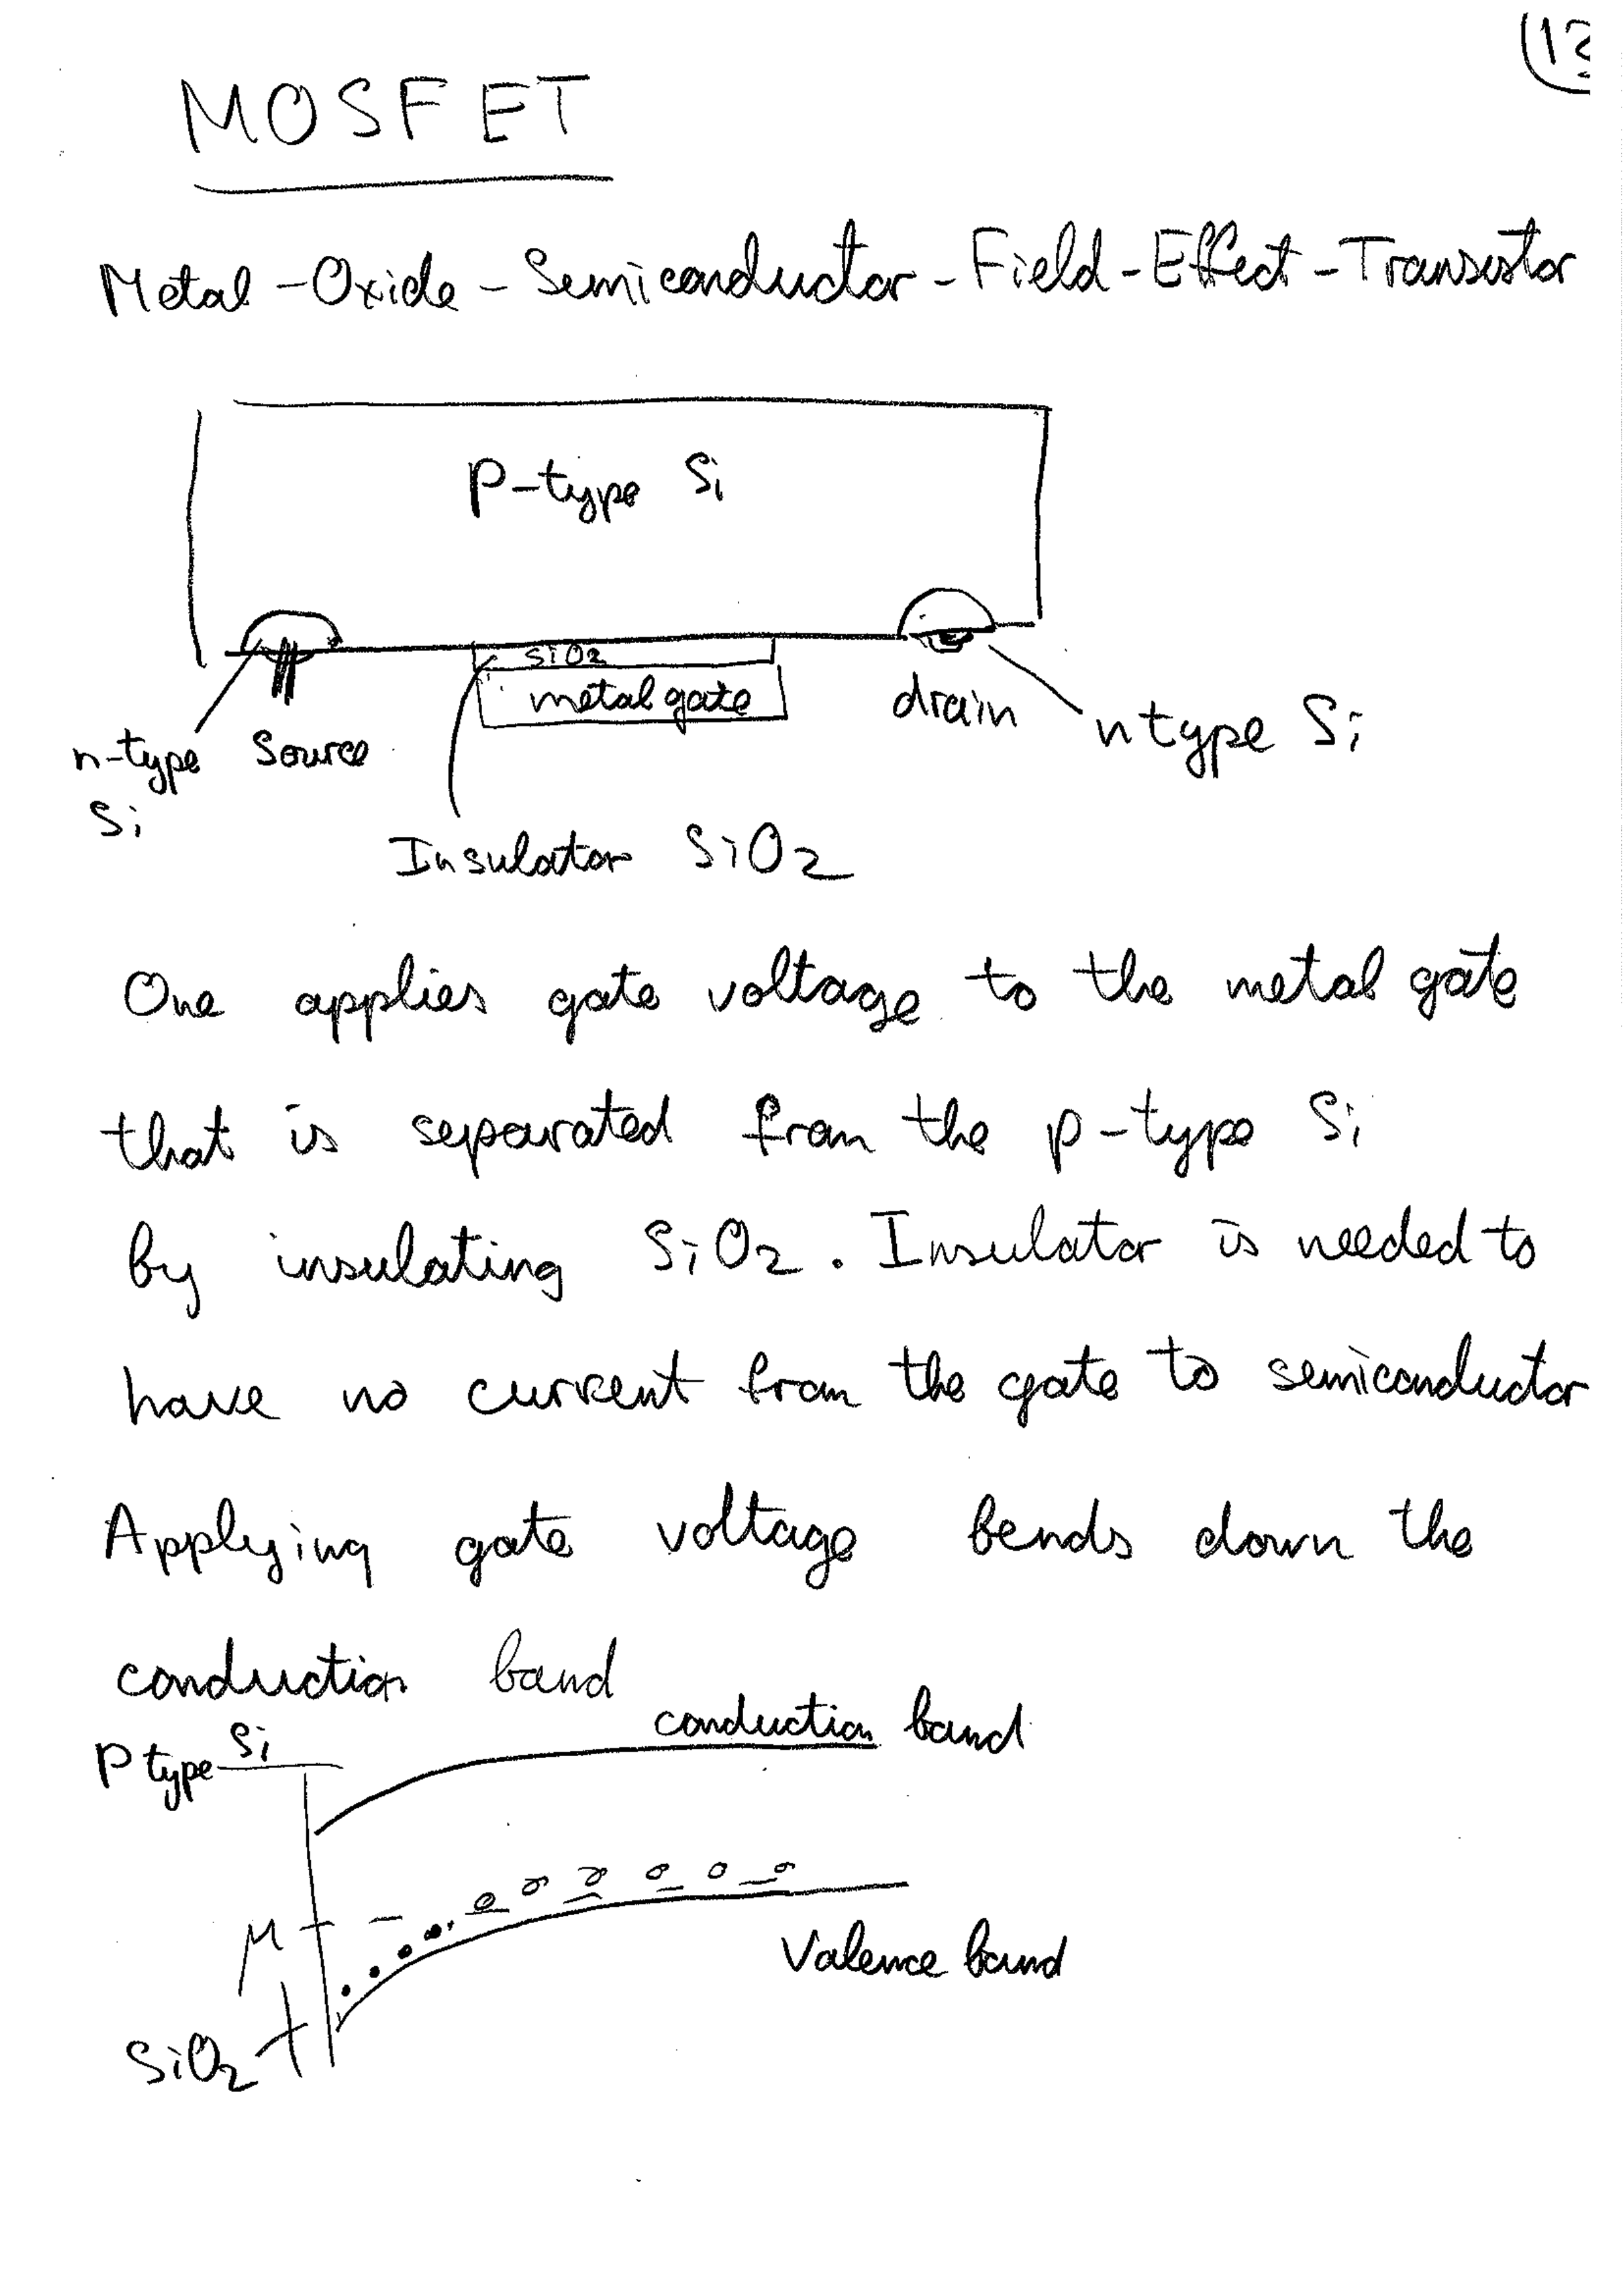 (12
MOSFET
Metal-Oxide-Semiconductor-Field-Effect-Transistor
p-type Si
SiO2
metal gate
drain
n type Si
n-type
Si
Source
Insulator SiO2
One applies gate voltage to the metal gate
that is separated from the p-type Si
by insulating SiO2. Insulator is needed to
have no current from the gate to semiconductor
Applying gate voltage bends down the
conduction band
conduction band
P type Si
μ
Valence band
SiO2